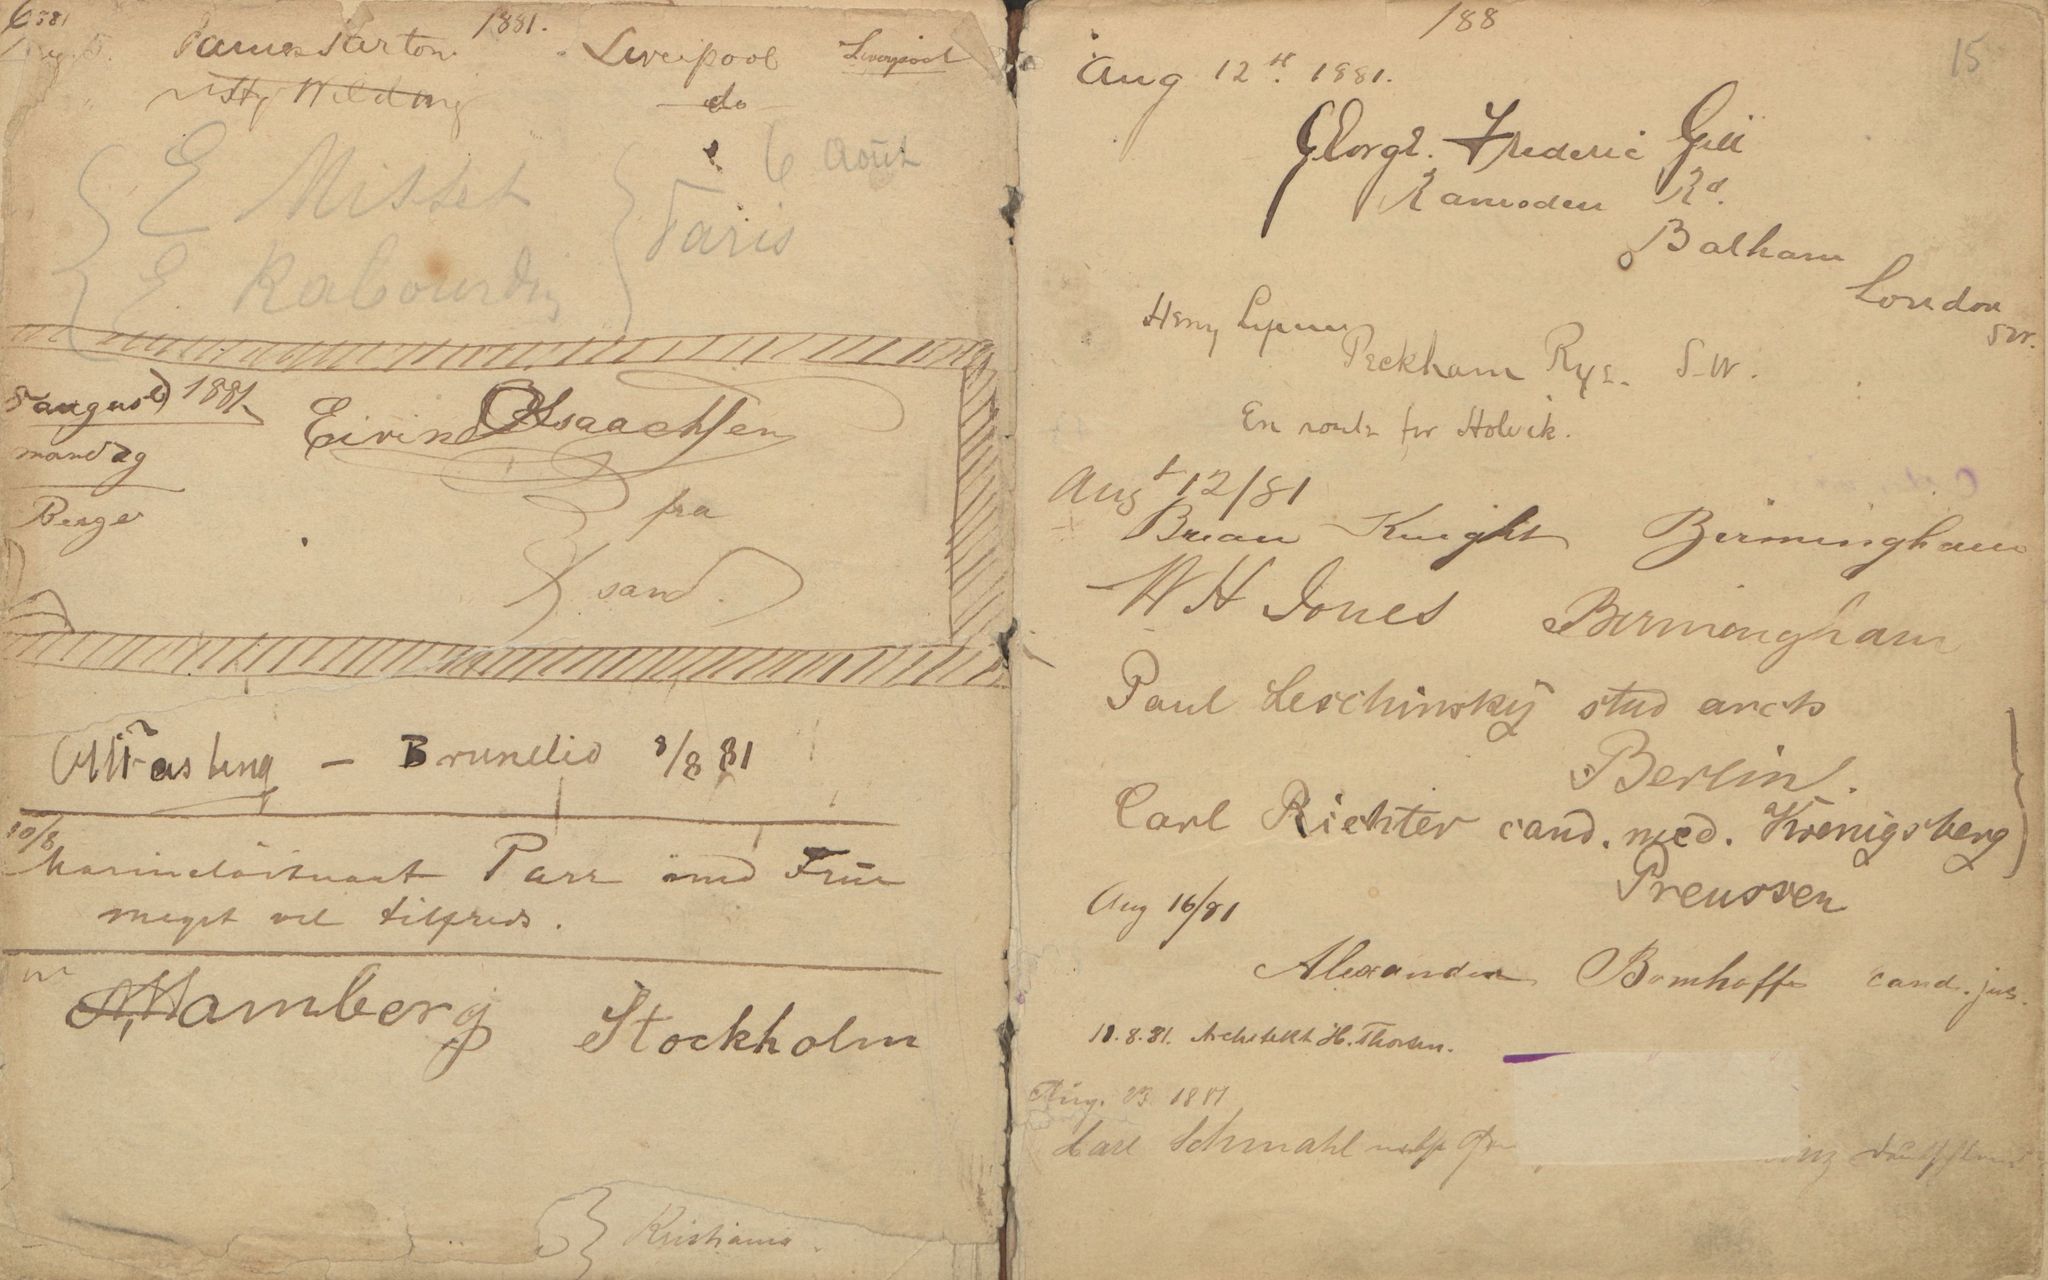 1881.
Liverpool Liverpool
Wilding do
6 Août
E Misset
Paris
E Rabourdin
8 august 1881
mandag
Eivind Isaachsen
Berge
fra
sand.
Fasting – Brunelid 8/8 81
10/8
Parr med Frue
meget vel tilfreds.
Hamberg Stockholm
Kristiania.
188
15
Aug 12th. 1881.
George. Frederic Gill
Ramsden Rd.
Balham
London
SW.
Henry
Peckham Rye. S.W.
En route for Holvik.
Augt 12/81
Brian Knight Birmingham
W H Jones Birmingham
Paul Leschinsky stud arch
Berlin.
Carl Richter cand. med. Kœnigsberg
Preussen
Aug 16/81
Alexander Bomhoff cand. jur.
18.8.81. Architekt H. Thorsen.
Aug. 23 1881
Karl Schmahl nebst Frau